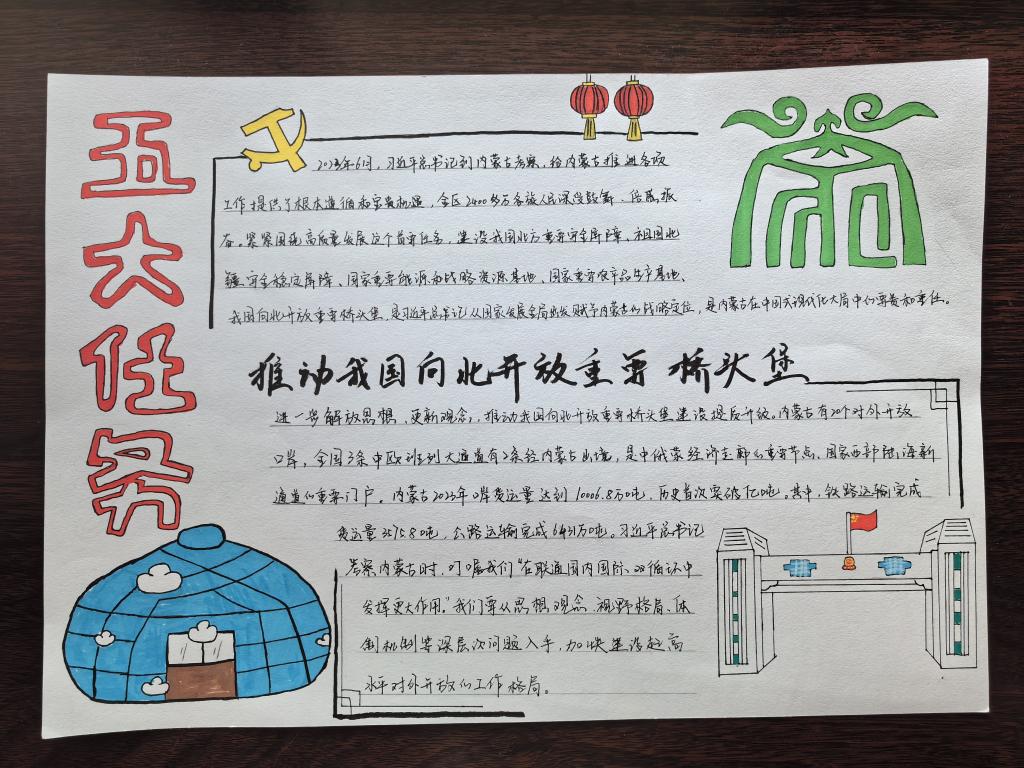 五大任务
2023年6月，习近平总书记到内蒙古考察，给内蒙古推进各项
工作提供了根本遵循和宝贵机遇，全区2400多万各族人民深受鼓舞、倍感振
奋。紧紧围绕高质量发展这个首要任务，建设我国北方重要安全屏障、祖国北
疆安全稳定屏障、国家重要能源和战略资源基地、国家重要农产品生产基地、
我国向北开放重要桥头堡，是习近平总书记从国家发展全局出发赋予内蒙古的战略定位，是内蒙古在中国式现代化大局中的要责和重任。
推动我国向北开放重要桥头堡
进一步解放思想、更新观念，推动我国向北开放重要桥头堡建设提质升级。内蒙古有20个对外开放
口岸，全国3条中欧班列大通道有2条经内蒙古出境，是中俄蒙经济走廊的重要节点，国家西部陆海新
通道的重要门户。内蒙古2023年口岸货运量达到10006.8万吨，历史首次突破亿吨。其中，铁路运输完成
货运量3575.8吨，公路运输完成6431万吨。习近平总书记
考察内蒙古时，叮嘱我们“在联通国内国际双循环中
发挥更大作用。”我们要从思想观念、视野格局、体
制机制等深层次问题入手，加快建设起高
水平对外开放的工作格局。